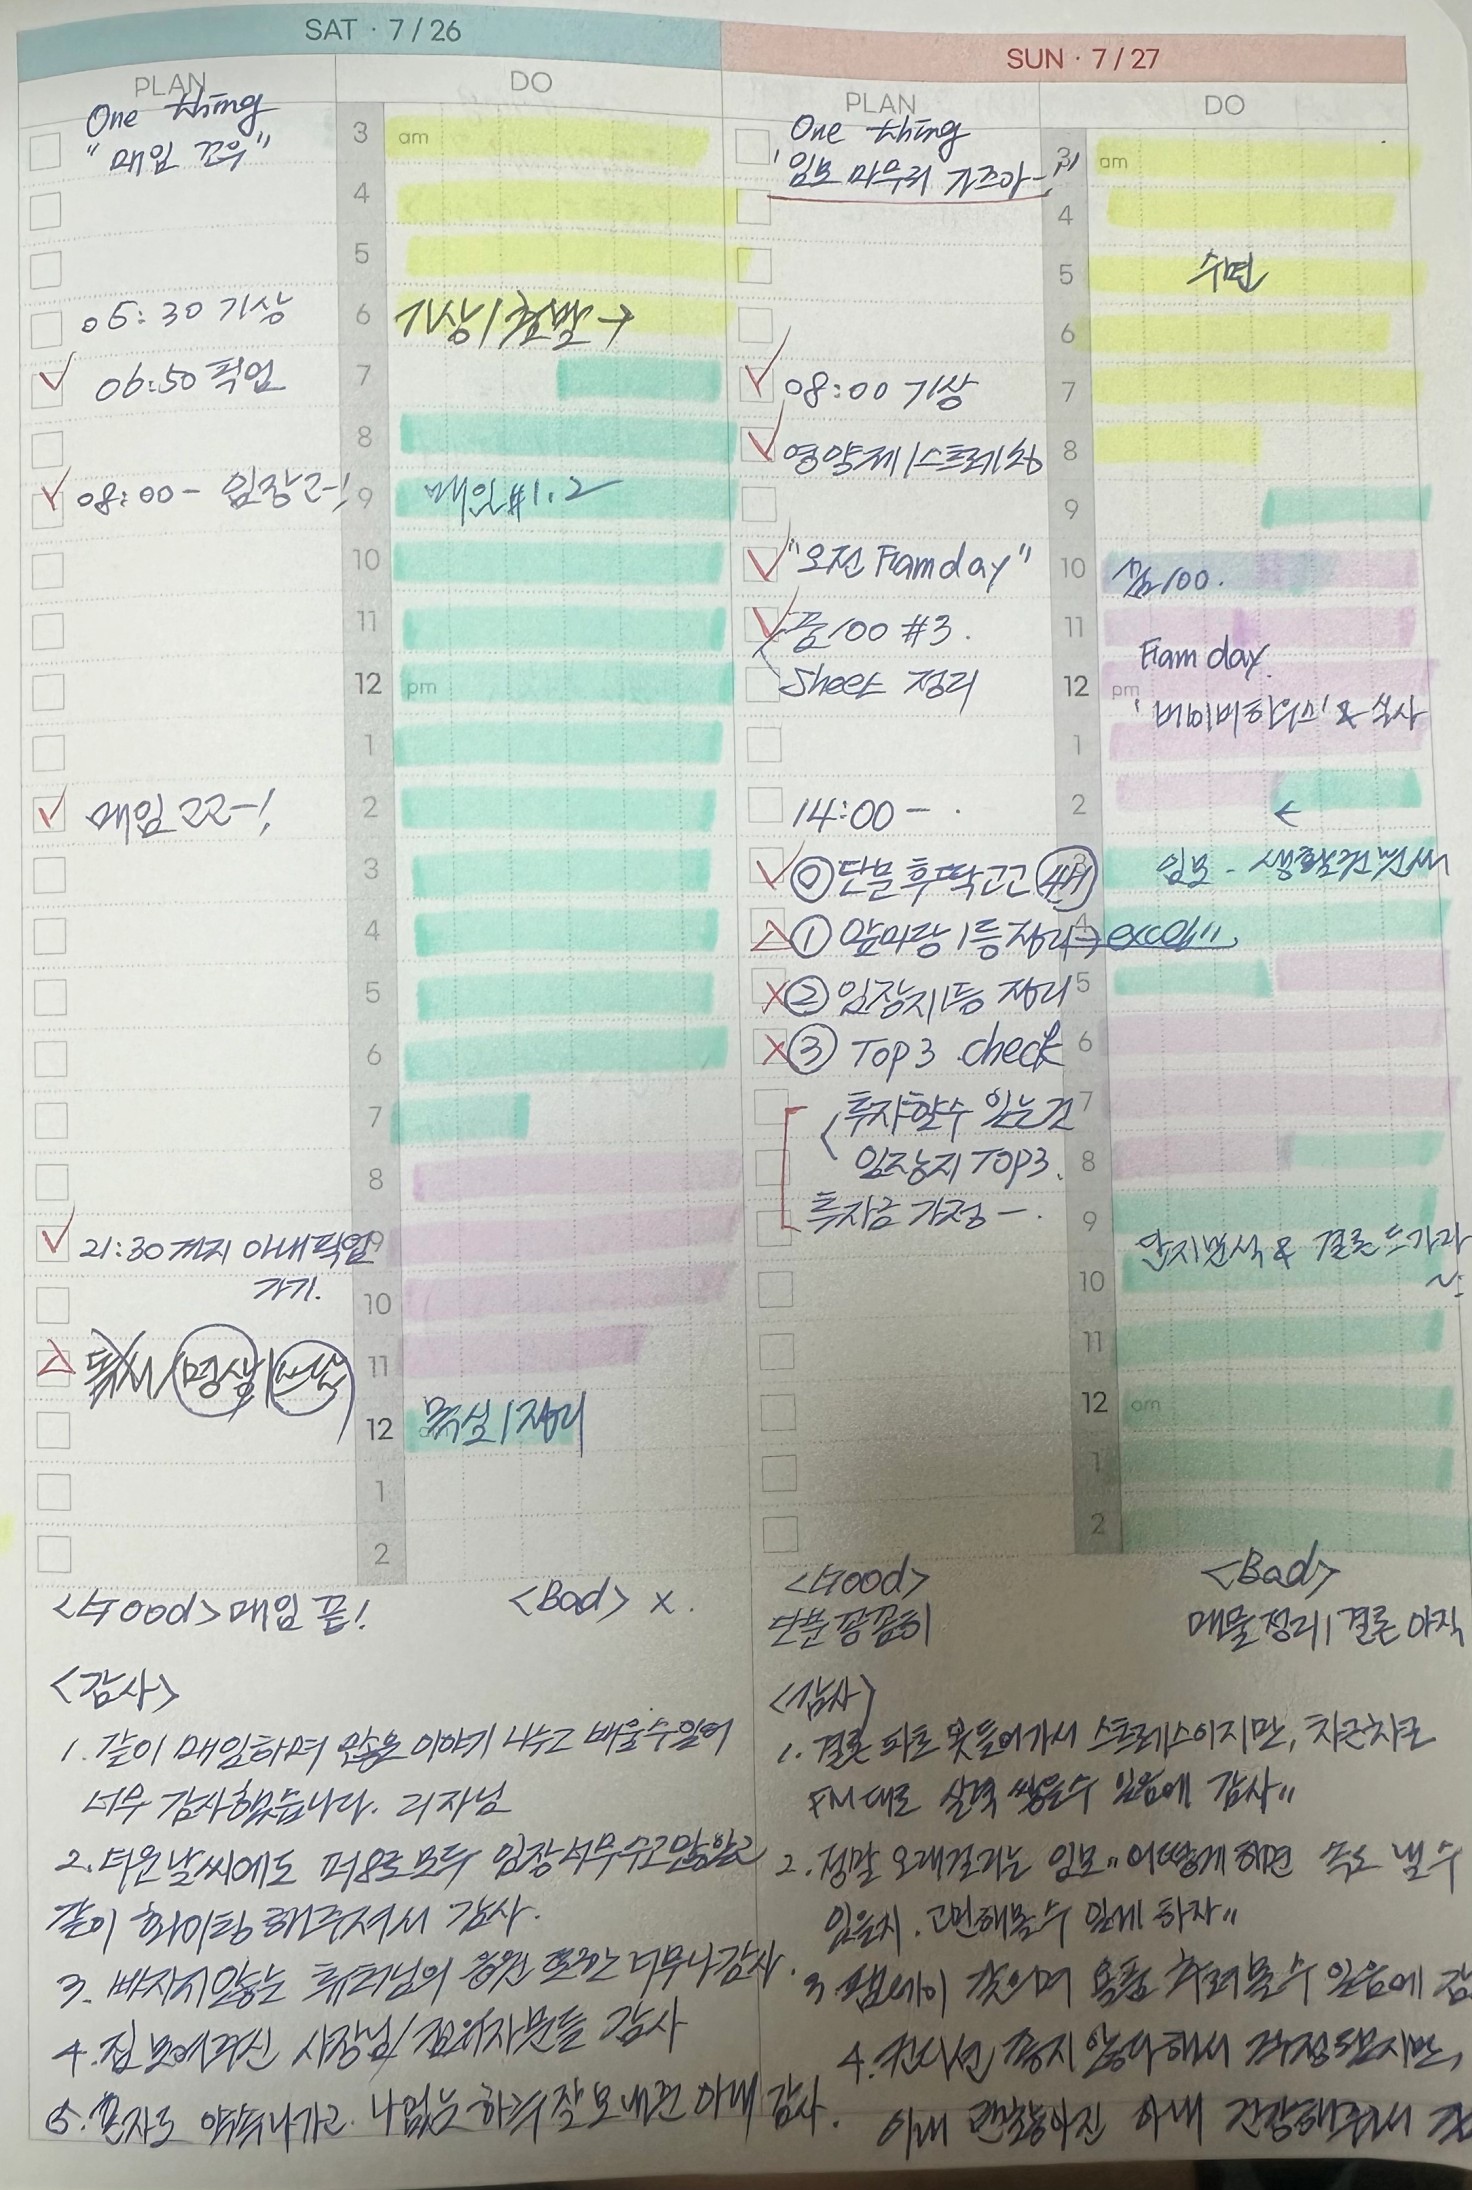 SAT · 7 / 26
PLAN
DO
One thing
"매임 꼬우"
3 am
4
5
06:30 기상
6 기상/출발→
06:50 픽업
7
8
08:00 - 임장고-!
9 매임#1.2
10
11
12 pm
1
매임 고고-!
2
3
4
5
6
7
8
21:30까지 아내픽업
9
가기.
10
독서/명상/
11
12 목실/정리
1
2
<Good> 매임 끝!
<Bad> x.
<감사>
1. 같이 매임하며 많은 이야기 나누고 배울수있어
너무 감사했습니다. 리자님
2. 더운날씨에도 모두 임장 너무 수고많았고
같이 화이팅 해주셔서 감사.
3. 빠지지않는 튜터님의 응원 너무나 감사.
4. 집 보여주신 사장님/ 감사
5. 혼자로 나없는 하루 잘 보내준 아내 감사.
SUN · 7 / 27
PLAN
DO
One thing
"임보 마무리 가즈아-"
3 am
4
5 수면
6
08:00 기상
7
영양제/스트레칭
8
9
"오전 Famday"
10 100.
100 #3.
11
Fam day.
Sheet 정리
12 pm
'베이비하우스' & 식사
1
14:00 - .
2 ←
⓪ 단분 후딱고고 4시
3 임보 -
① 앞마당 1등 정리 → excel"
4
② 임장지 1등 정리
5
③ TOP3 check
6
투자할수 있는건
7
임장지 TOP3.
8
투자금 가정 - .
9
단지분석 & 결론 드가자~
10
11
12 am
1
2
<Good>
단분 꼼꼼히
<Bad>
매물정리/결론 아직
<감사>
1. 결론 파트 못들어가서 스트레스이지만, 차근차근
FM대로 실력 쌓을수 있음에 감사"
2. 정말 오래걸리는 임보" 어떻게 하면 속도 낼 수
있을지. 고민해볼수 있게 하자"
3. 같으며 용품 추려볼수 있음에 감
4. 컨디션 좋지 않다해서 걱정됐지만,
이내 괜찮아진 아내 건강해줘서